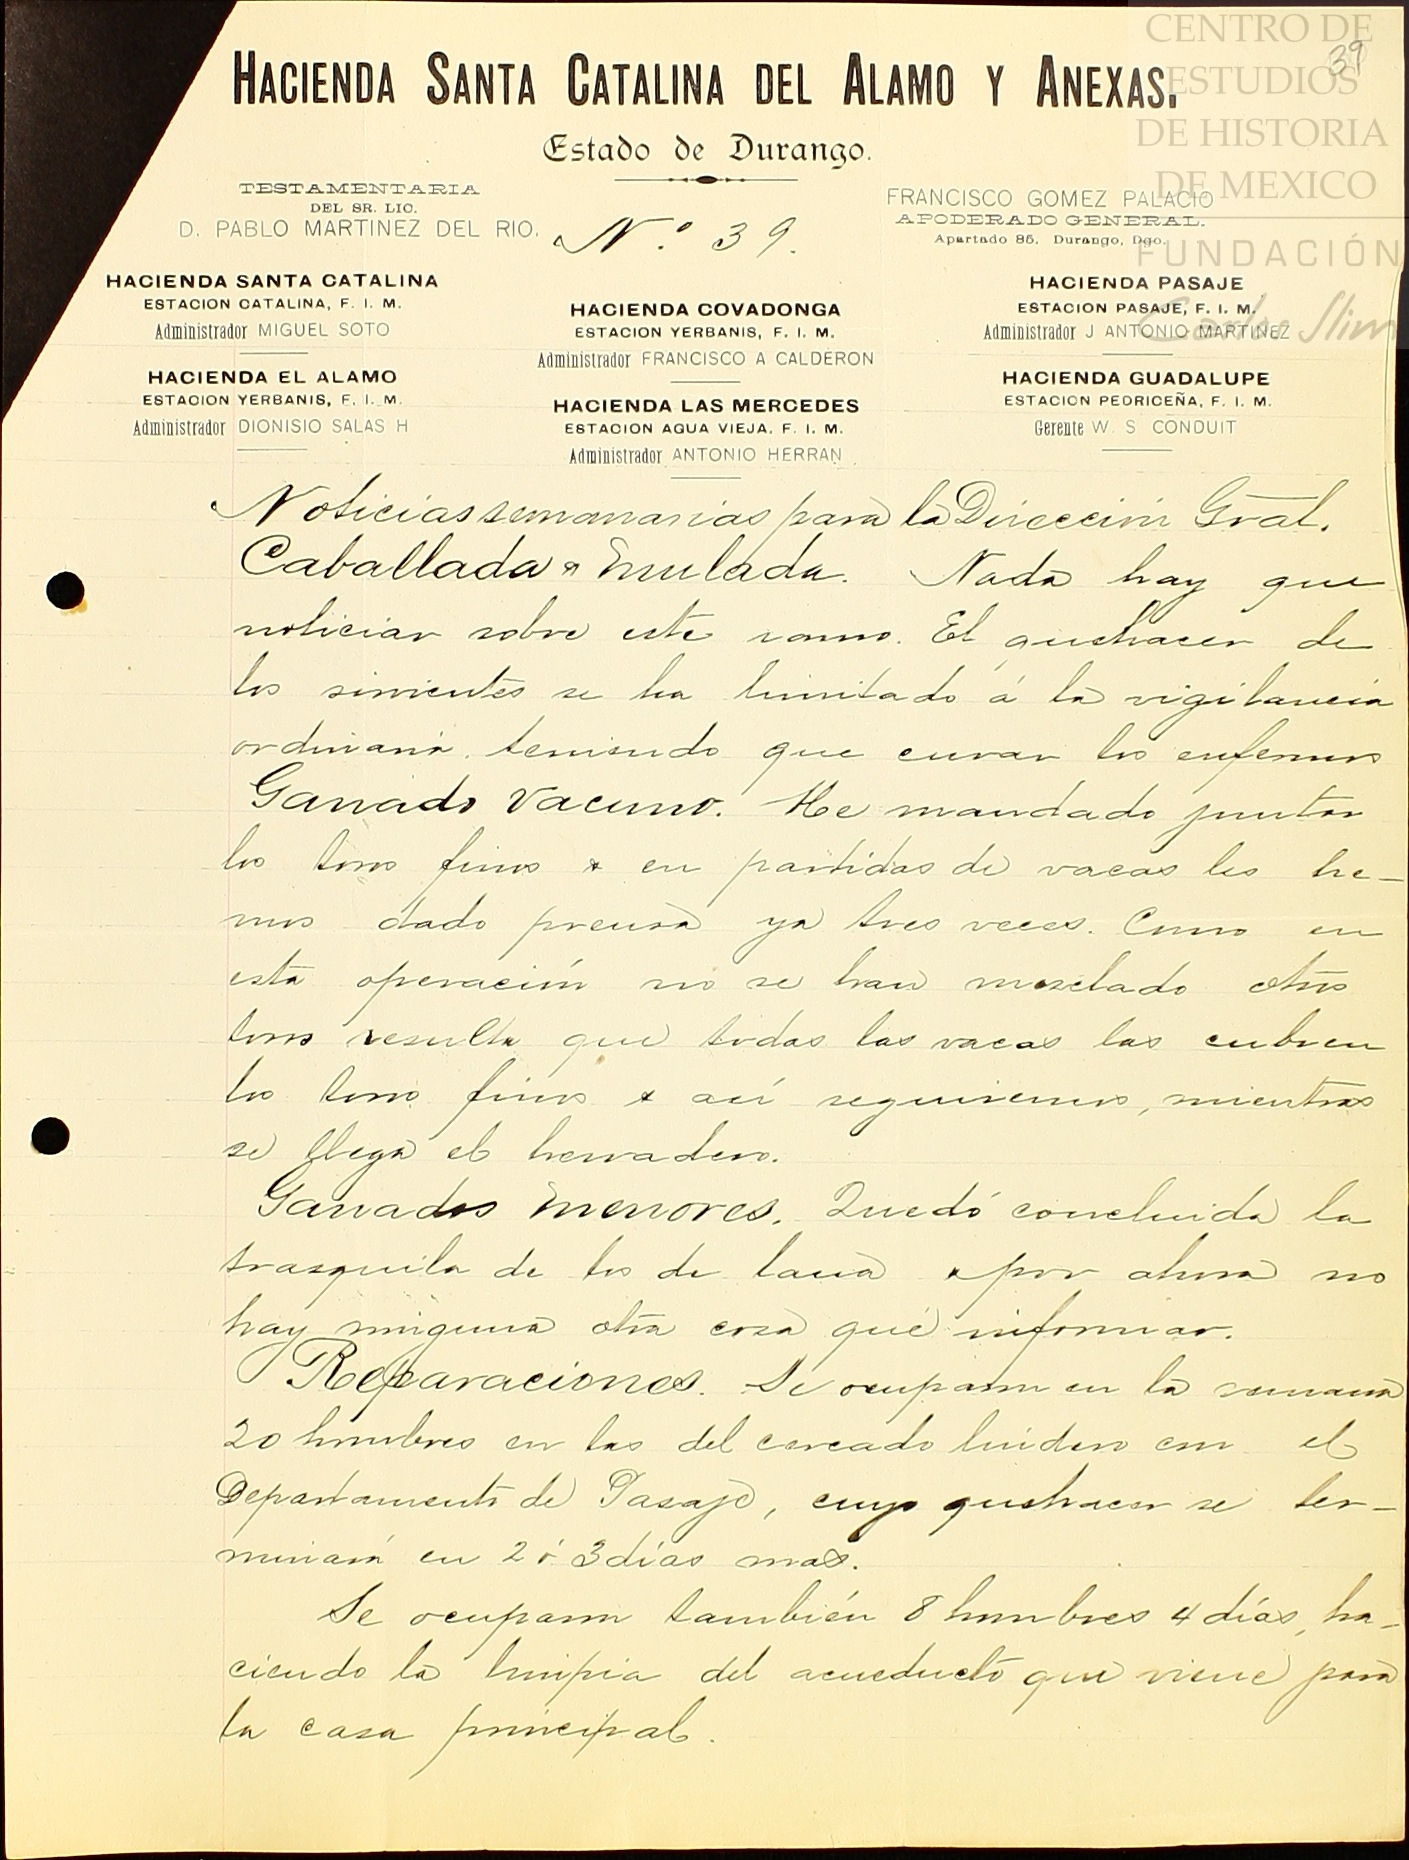 CENTRO DE
ESTUDIOS
DE HISTORIA
DE MEXICO
FUNDACIÓN
Carlos Slim
39
HACIENDA SANTA CATALINA DEL ALAMO Y ANEXAS.
Estado de Durango.
TESTAMENTARIA
DEL SR. LIC.
D. PABLO MARTINEZ DEL RIO.
N.o 39.
FRANCISCO GOMEZ PALACIO
APODERADO GENERAL.
Apartado 85. Durango, Dgo.
HACIENDA SANTA CATALINA
ESTACION CATALINA, F. I. M.
Administrador MIGUEL SOTO
HACIENDA EL ALAMO
ESTACION YERBANIS, F. I. M.
Administrador DIONISIO SALAS H
HACIENDA COVADONGA
ESTACION YERBANIS, F. I. M.
Administrador FRANCISCO A CALDERON
HACIENDA LAS MERCEDES
ESTACION AGUA VIEJA. F. I. M.
Administrador ANTONIO HERRAN
HACIENDA PASAJE
ESTACION PASAJE, F. I. M.
Administrador J ANTONIO MARTINEZ
HACIENDA GUADALUPE
ESTACION PEDRICEÑA, F. I. M.
Gerente W. S CONDUIT
Noticias semanarias para la Dirección Gral.
Caballada y mulada. Nada hay que
noticiar sobre este ramo. El quehacer de
los sirvientes se ha limitado á la vigilancia
ordinaria, teniendo que curar los enfermos
Ganado vacuno. He mandado juntar
los toros finos y en partidas de vacas les he-
mos dado prensa ya tres veces. Como en
esta operación no se han mezclado otros
toros resulta que todas las vacas las cubren
los toros finos y así seguiremos, mientras
se llega el herradero.
Ganados menores. Quedó concluida la
trasquila de los de lana y por ahora no
hay ninguna otra cosa qué informar.
Reparaciones. Se ocuparon en la semana
20 hombres en las del cercado lindero con el
Departamento de Pasaje, cuyo quehacer se ter-
minará en 2 ó 3 días mas.
Se ocuparon también 8 hombres 4 días, ha-
ciendo la limpia del acueducto que viene para
la casa principal.